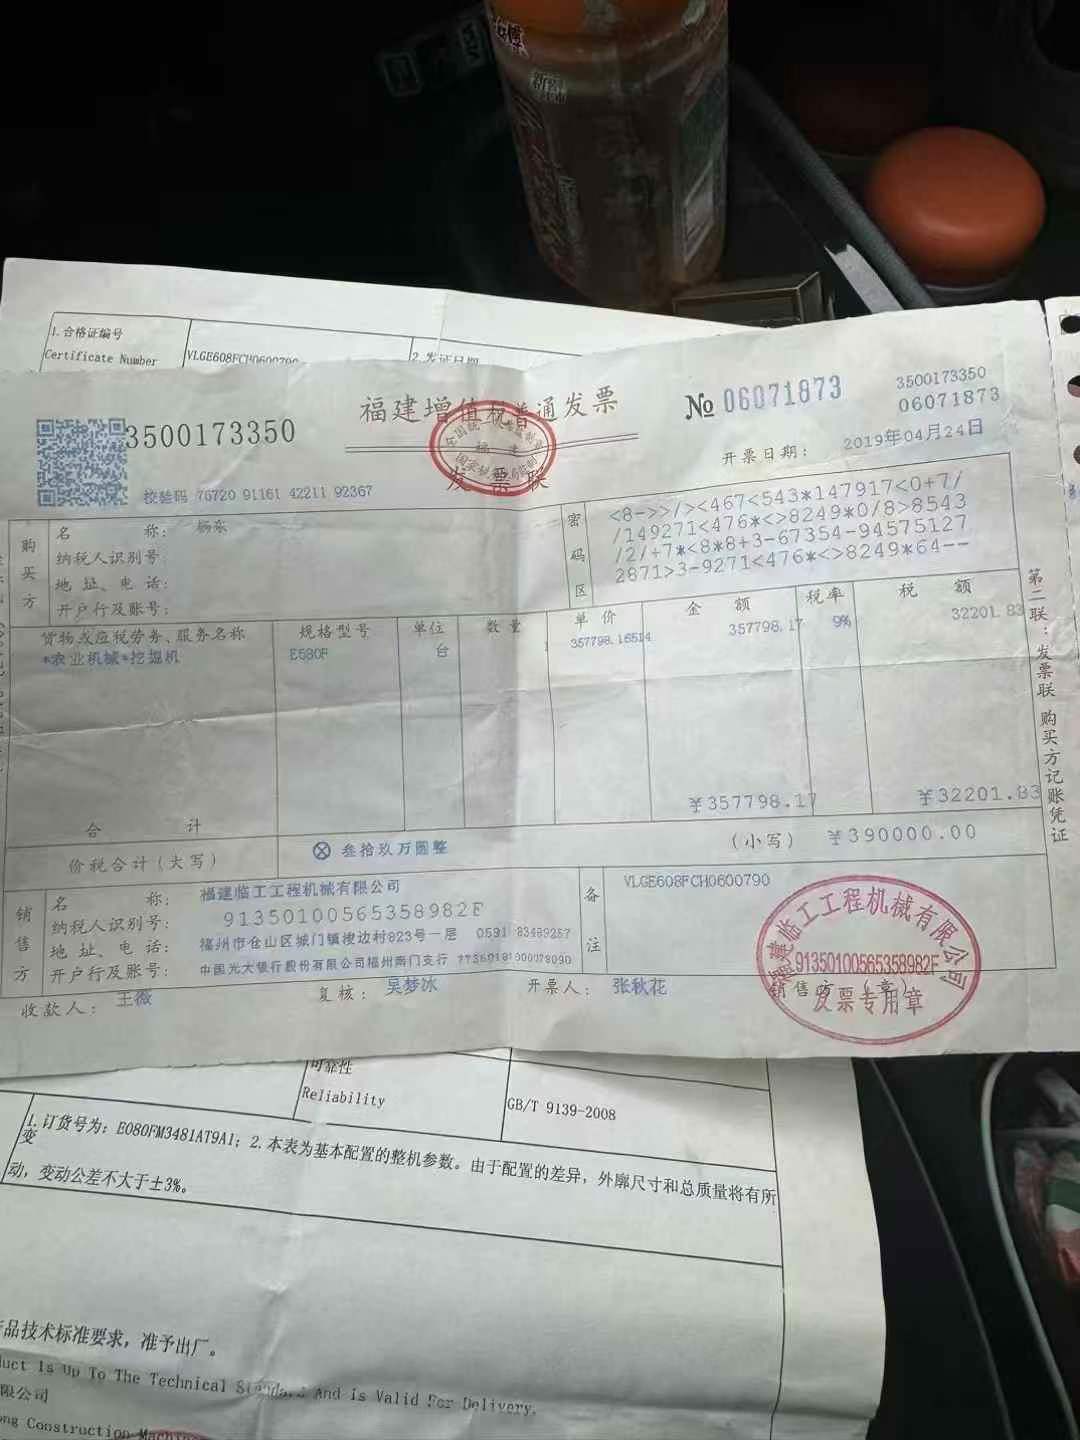 1.合格证编号
Certificate Number
VLGE608FCH0600790
2.发证日期
3500173350
福建增值税普通发票
发票联
№ 06071873
3500173350
06071873
校验码 76720 91161 42211 92367
开票日期: 2019年04月24日
购买方
名 称: 杨东
纳税人识别号:
地 址、电 话:
开户行及账号:
密码区
<8->>/><467<543*147917<0+7/
/149271<476*<>8249*0/8>8543
/2/+7*<8*8+3-67354-94575127
2871>3-9271<476*<>8249*64--
货物或应税劳务、服务名称 规格型号 单位 数量 单价 金额 税率 税额
*农业机械*挖掘机 台 1 357798.16514 357798.17 9% 32201.83
合 计 ¥357798.17 ¥32201.83
价税合计(大写) ⊗ 叁拾玖万圆整 (小写) ¥390000.00
销售方
名 称: 福建临工工程机械有限公司
纳税人识别号: 91350100565358982F
地 址、电 话: 福州市仓山区城门镇梭边村823号一层 0591-83489257
开户行及账号: 中国光大银行股份有限公司福州南门支行
备注
VLGE608FCH0600790
收款人: 王薇 复核: 吴梦冰 开票人: 张秋花 销售方:(章)
福建临工工程机械有限公司
91350100565358982F
发票专用章
第二联:发票联 购买方记账凭证
可靠性
Reliability
GB/T 9139-2008
1.订货号为: E080FM3481AT9A1; 2.本表为基本配置的整机参数。由于配置的差异, 外廓尺寸和总质量将有所
变
动, 变动公差不大于±3%。
品技术标准要求, 准予出厂。
duct Is Up To The Technical Standard And Is Valid For Delivery.
限公司
ong Construction Machin